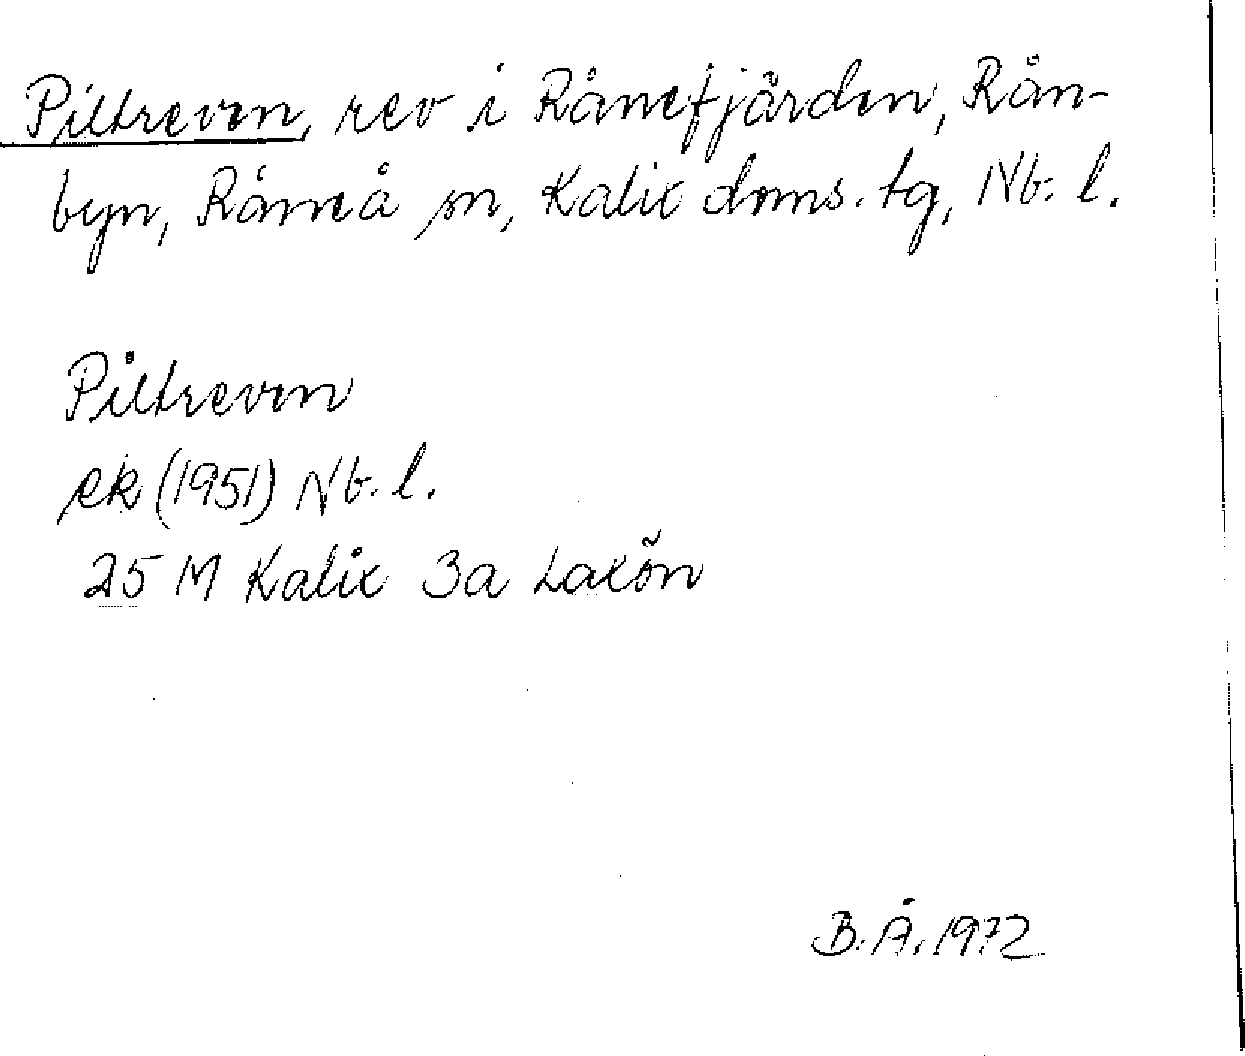 Piltreven, rev i Rånefjärden, Rån-
byn, Råneå sn, Kalix doms. tg, Nb. l.
Piltreven
ek (1951) Nb. l.
25 M Kalix 3a Laxön
B. Å. 1972